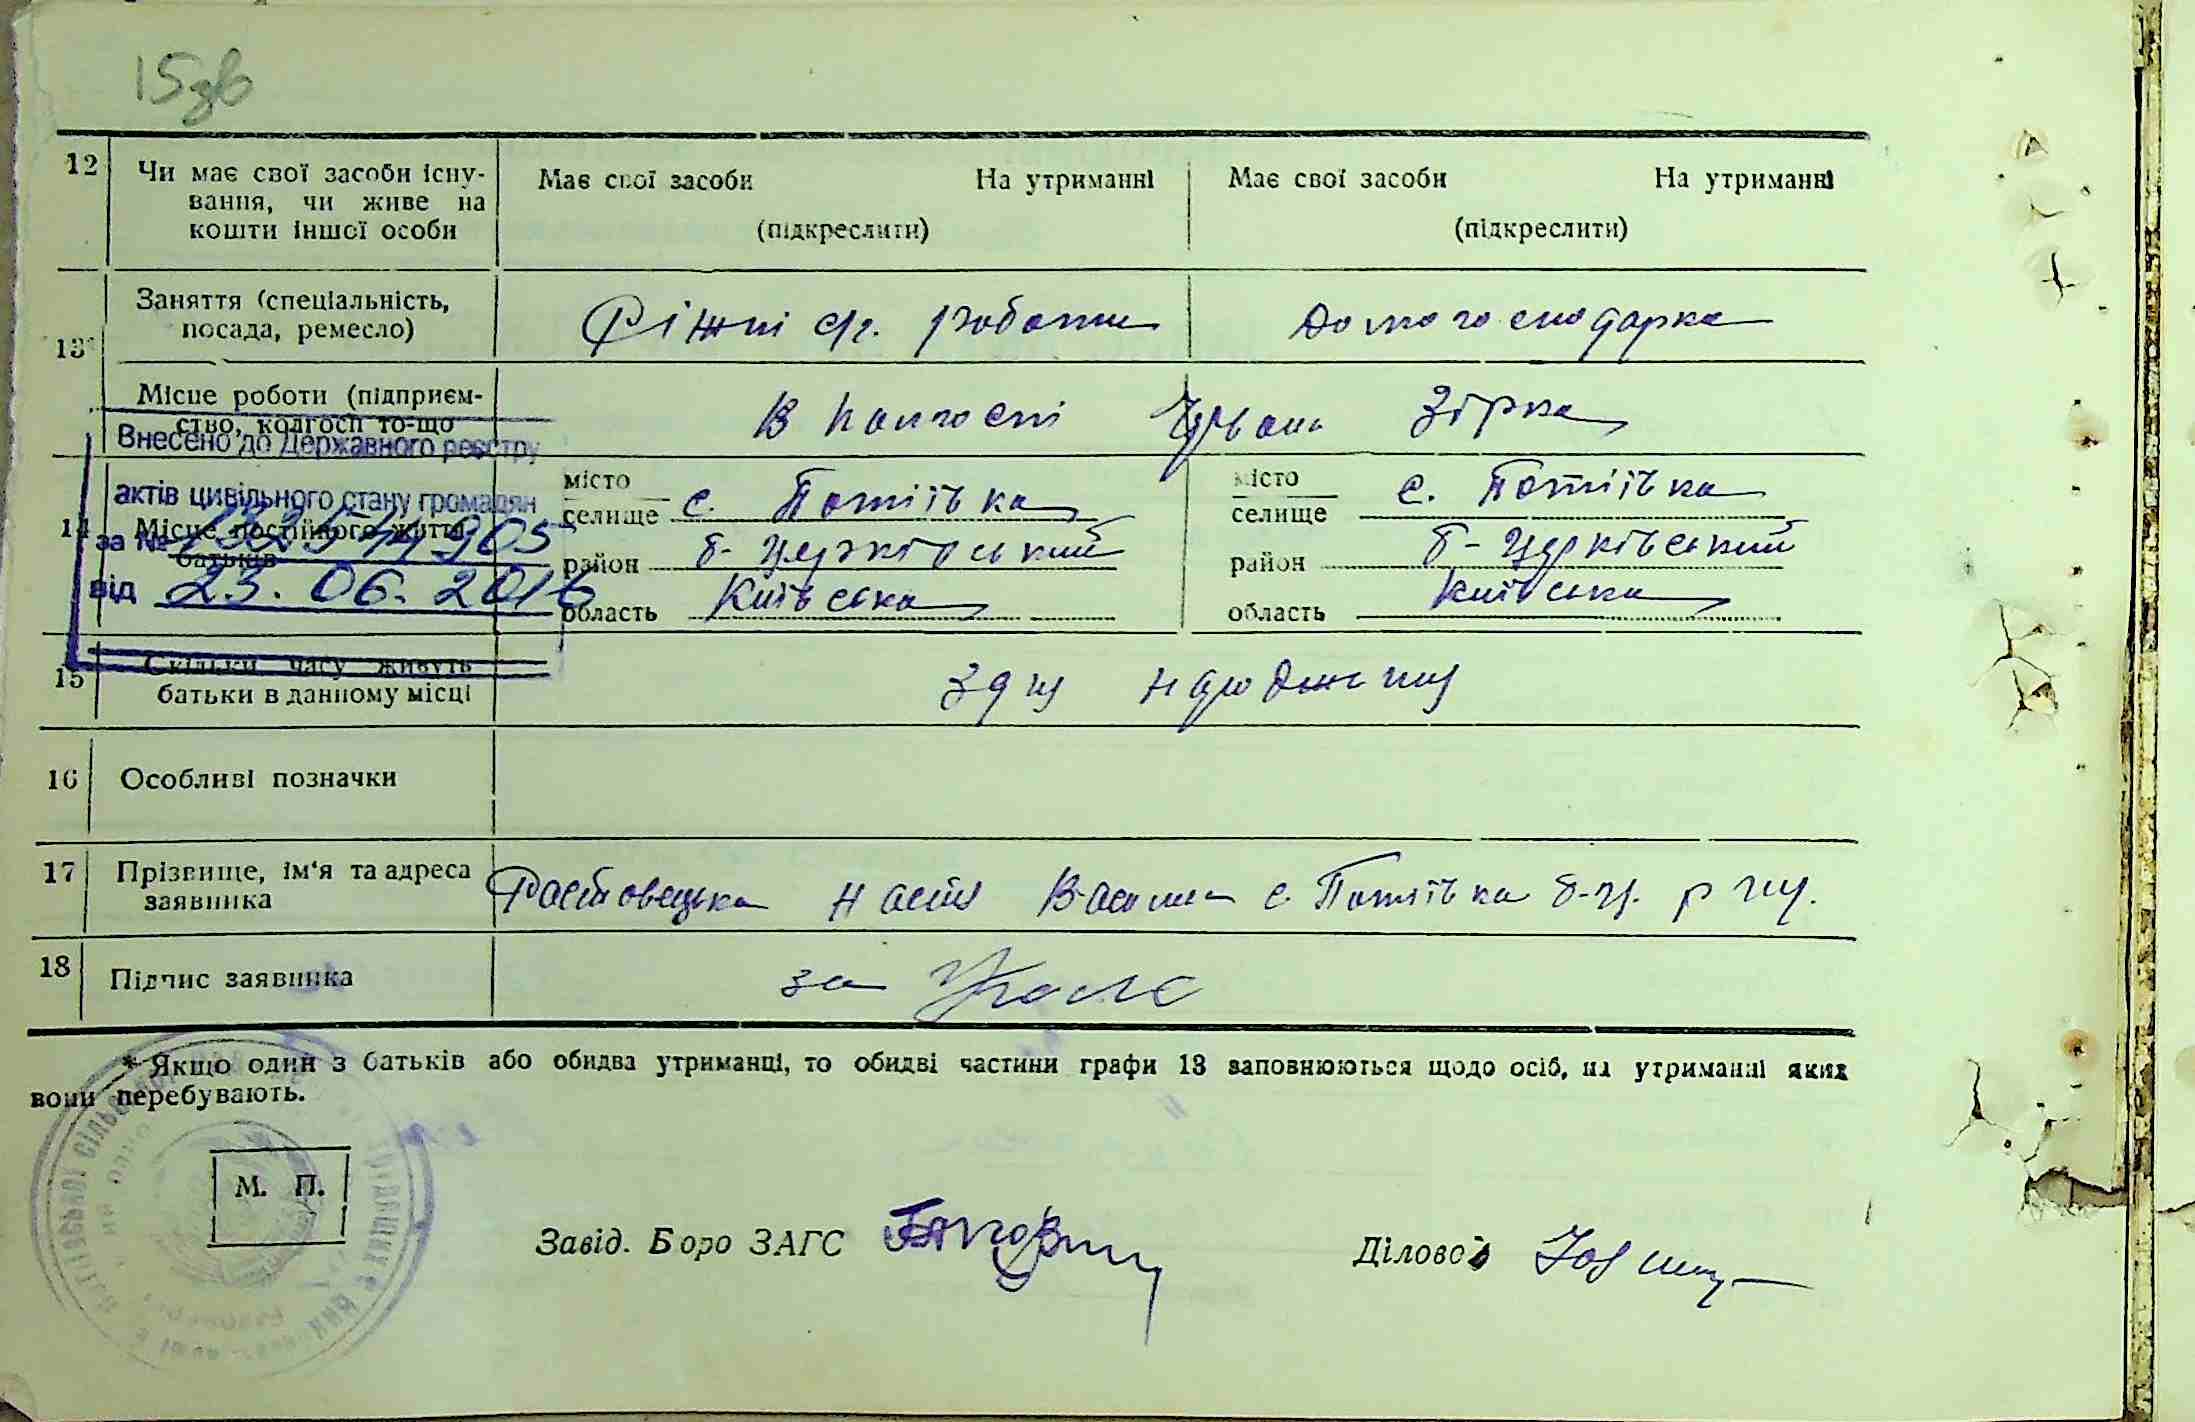 15зв
12 Чи має свої засоби існу-
вання, чи живе на
кошти іншої особи
Має свої засоби На утриманні
(підкреслити)
Має свої засоби На утриманні
(підкреслити)
13* Заняття (спеціальність,
посада, ремесло)
Ріжні с/г. роботи
Домогосподарка
Місце роботи (підприєм-
ство, колгосп то-що
В колгоспі Червона Зірка
Внесено до Державного реєстру
актів цивільного стану громадян
за №
від 23.06.2016
14 Місце постійного життя
батьків
місто
селище с. Потіївка
район б-церківський
область Київська
місто
селище с. Потіївка
район б-церківський
область Київська
15 Скільки часу живуть
батьки в данному місці
З дня народження
16 Особливі позначки
17 Прізвище, ім'я та адреса
заявника
Ростовецька Настя с. Потіївка б-ц. р
18 Підпис заявника
за
* Якщо один з батьків або обидва утриманці, то обидві частини графи 13 заповнюються щодо осіб, на утриманні яких
вони перебувають.
М. П.
Завід. Бюро ЗАГС
Діловод